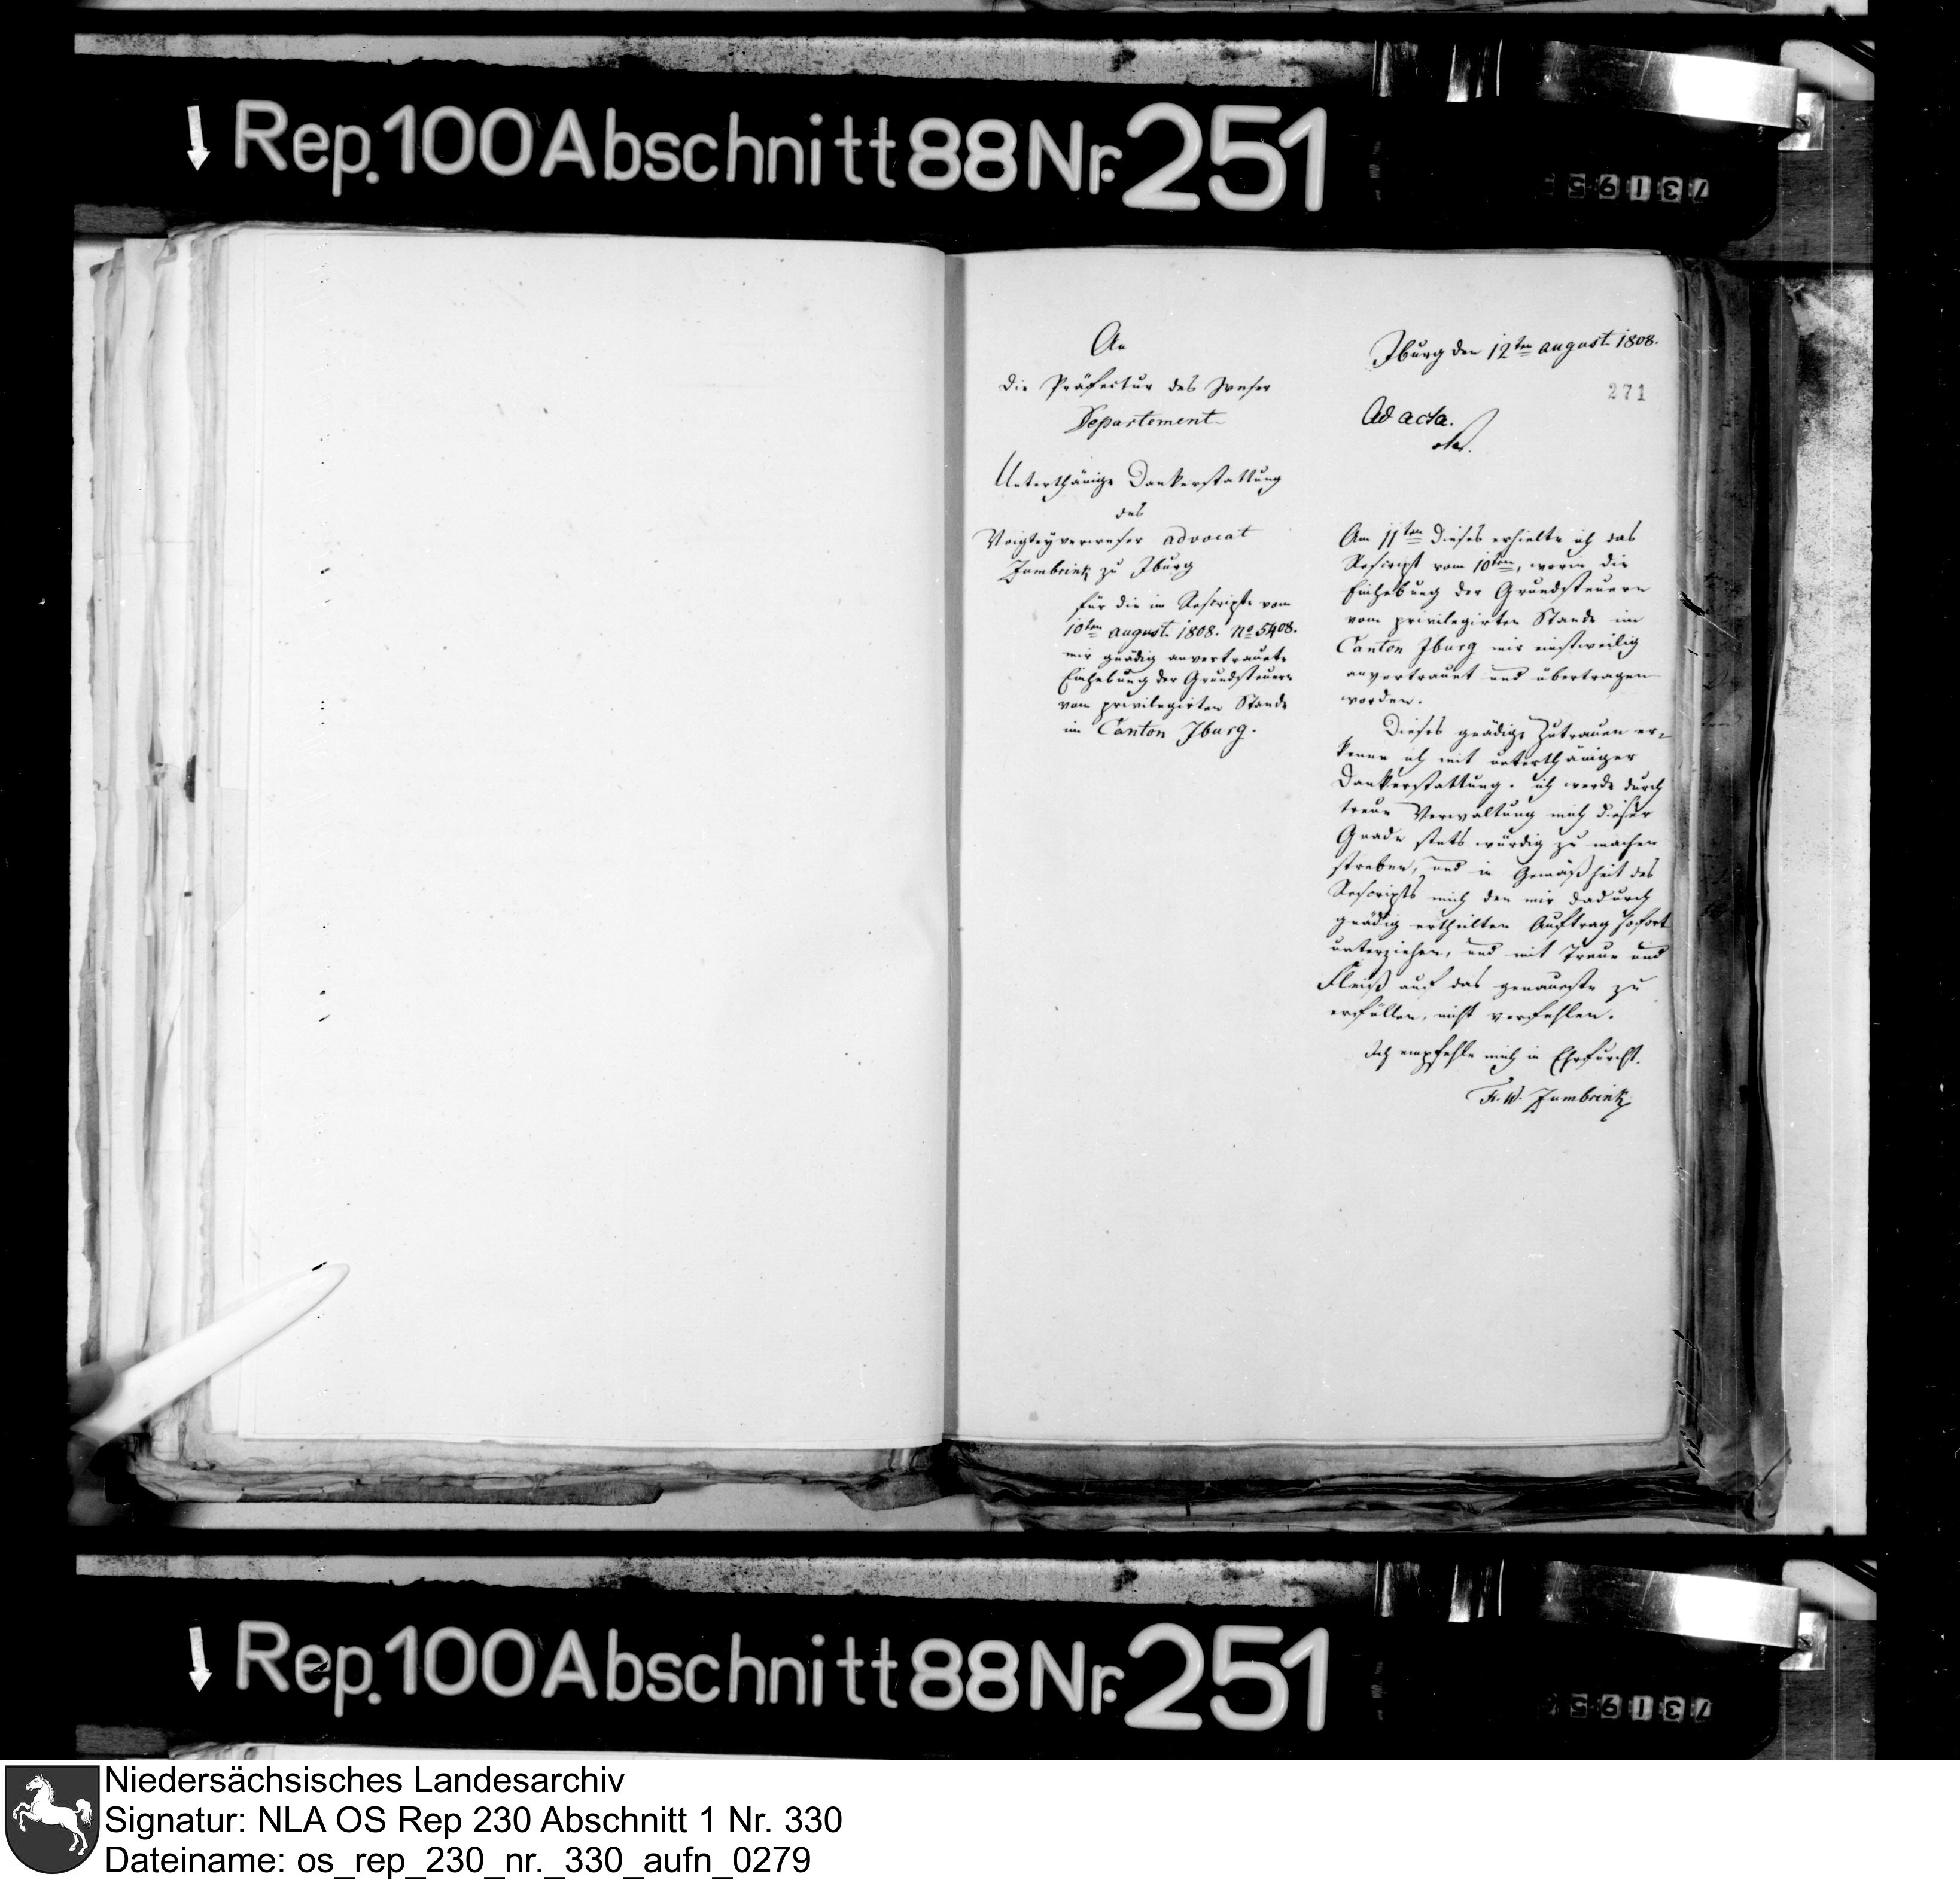 Rep. 100 Abschnitt 88 Nr. 251
731951
An
die Präfectur des Weser
Departement
Unterthänige Dankerstattung
des
Voigteyverweser Advocat
Zumbrink zu Iburg
für die im Rescripte vom
10ten august. 1808. No 5408.
mir gnädig anvertraute
Einhebung der Grundsteuern
vom privilegirten Stande
im Canton Iburg.
Iburg den 12ten august. 1808.
271
Ad acta.
Am 11ten dieses erhielte ich das
Rescript vom 10ten, worin die
Einhebung der Grundsteuern
vom privilegirten Stande im
Canton Iburg mir einstweilig
anvertrauet und übertragen
worden.
Dieses gnädige Zutrauen er-
kenne ich mit unterthäniger
Dankerstattung. ich werde durch
treue Verwaltung mich dieser
Gnade stets würdig zu machen
streben, und in Gemäßheit des
Rescripts mich den mir dadurch
gnädig ertheilten Auftrag sofort
unterziehen, und mit Treue und
Fleiß auf das genaueste zu
erfüllen, nicht verfehlen.
Ich empfehle mich in Ehrfurcht.
Fr. W. Zumbrink
Rep. 100 Abschnitt 88 Nr. 251
731951
Niedersächsisches Landesarchiv
Signatur: NLA OS Rep 230 Abschnitt 1 Nr. 330
Dateiname: os_rep_230_nr._330_aufn_0279